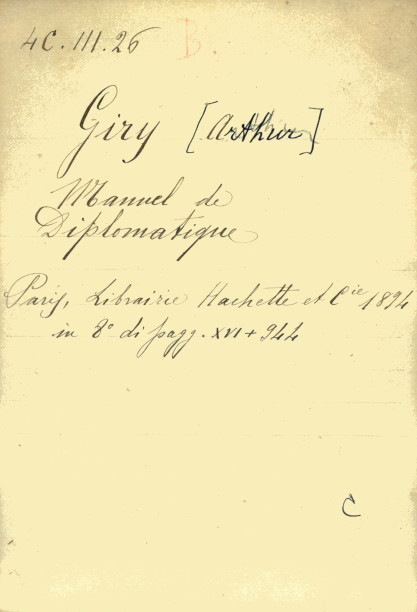 4C.III.26 B.
Giry [Arthur]
Manuel de
Diplomatique
Paris, Librairie Hachette et Cie 1894
in 8° di pagg. XVI + 944
C